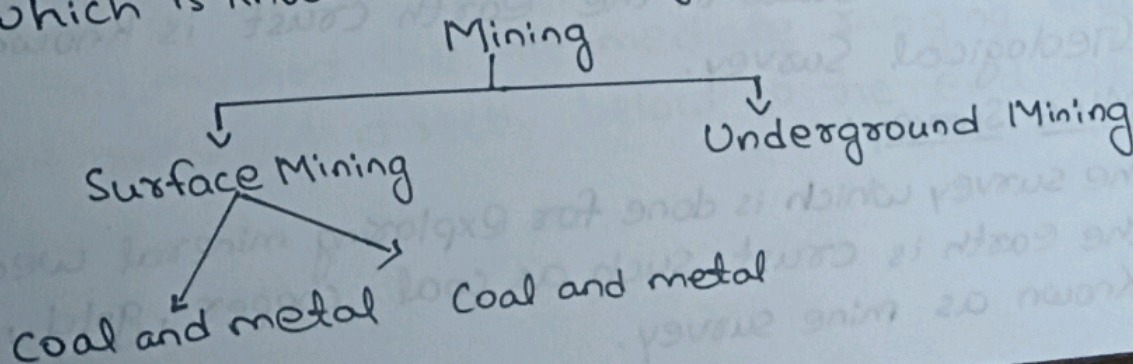 which is
Mining
Surface Mining
Underground Mining
coal and metal
coal and metal